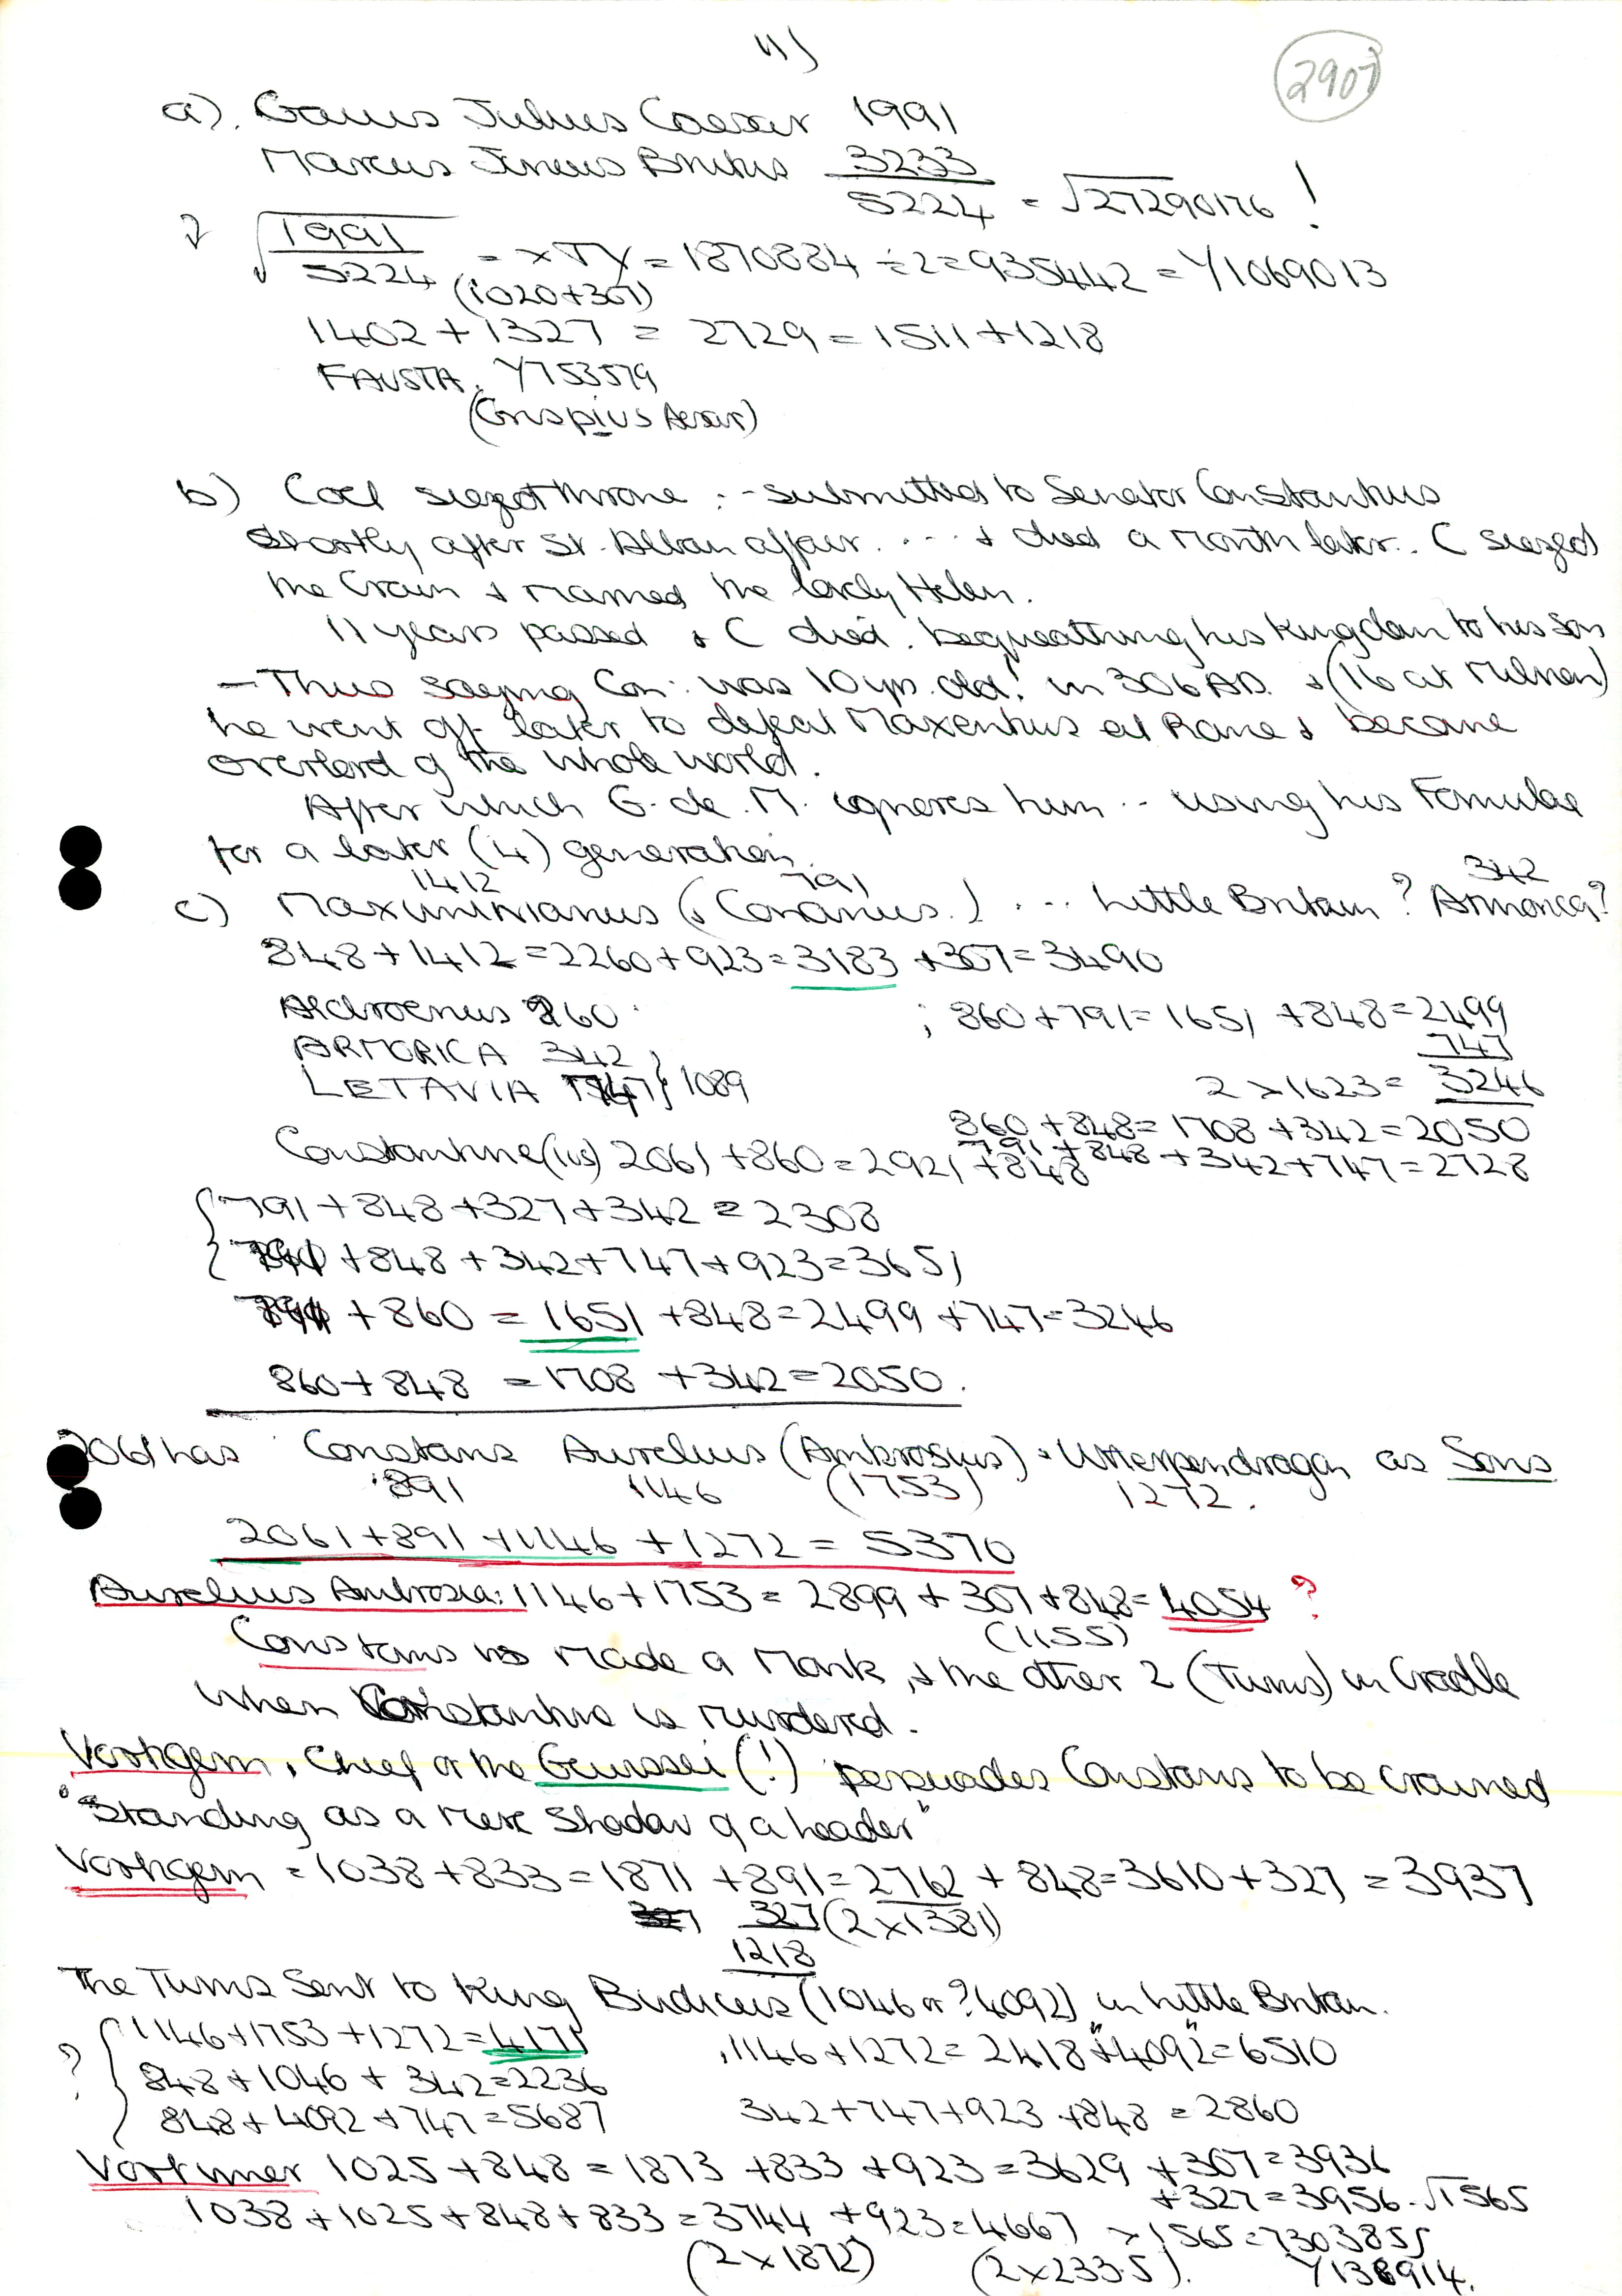 11)
2907
a). Gaius Julius Caesar 1991
Marcus Juneus Brutus 3233
5224 = √27290176 !
√1991/5224 = xTY = 1870884 ÷ 2 = 935442 = Y1069013
(1020+307)
1402 + 1327 = 2729 = 1511 + 1218
FAUSTA. Y753579
(Crispius Aesar)
b) Coel siezed throne :- submitted to Senator Constantius
shortly after St. Alban affair. ... + died a month later.. C siezed
the Crown + married the lovely Helen.
11 years passed + C died. bequeathing his Kingdom to his son
- Thus saying Con: was 10 yrs. old! in 306 AD. + (16 at Milvian)
he went off later to defeat Maxentius at Rome + become
overlord of the whole world.
After which G. de. M. ignores him .. using his Formulae
for a later (4) generation.
1412 791 342
c) Maximinianus (+ Conanus.) ... Little Britain? Armorica?
848+1412=2260+923=3183+307=3490
Aldroenus 860 ; 860+791=1651 +848=2499
ARMORICA 342 747
LETAVIA 747} 1089 2 x 1623= 3246
860+848=1708+342=2050
Constantine(ius) 2061+860=2921+848 791+848+342+747=2728
791+848+327+342=2308
+848+342+747+923=3651
791 +860 = 1651 +848=2499 +747=3246
860+848 =1708 +342=2050.
2061 has Constans Aurelius (Ambrosius) + Utterpendragon as Sons
891 1146 (1753) 1272.
2061+891+1146+1272 = 5370
Aurelius Ambrosia: 1146+1753=2899 + 307+848=4054 ?
(1155)
Constans is made a Monk, + the other 2 (Twins) in Cradle
when Constantine is murdered.
Vortigern, Chief of the Gewissei (!) persuades Constans to be crowned
"Standing as a mere Shadow of a leader"
Vortigern =1038+833=1871 +891=2762 + 848=3610+327 = 3937
327 (2x1381)
1218
The Twins Sent to King Budicius (1046 or ?4092) in Little Britain.
? { 1146+1753+1272=4171 , 1146+1272=2418+"4092"=6510
848+1046+342=2236
848+4092+747=5687 342+747+923+848=2860
Vortimer 1025+848=1873 +833 +923=3629 +307=3936
+327=3956.√1565
1038+1025+848+833=3744 +923=4667 x1565=7303855
(2x1872) (2x2333.5). Y136914.